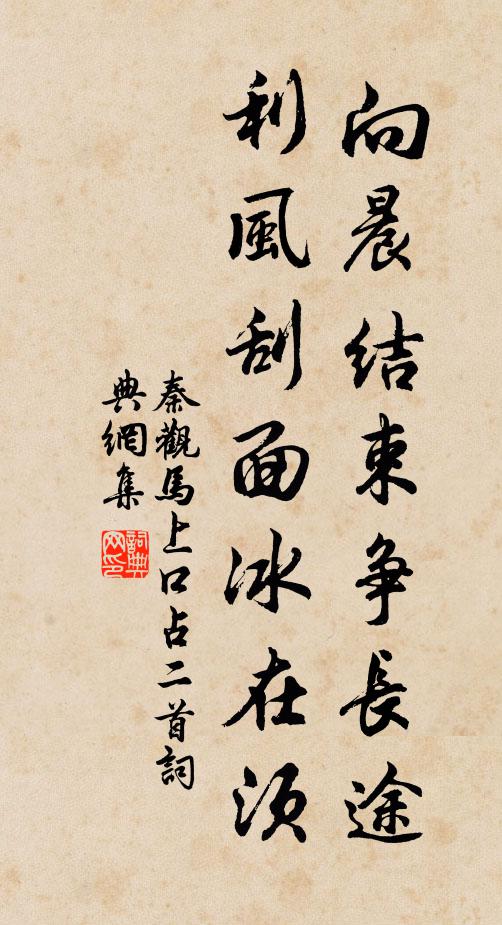 向晨結束争長途
利風刮面冰在須
秦觀馬上口占二首詞
典網集
詞典
网印